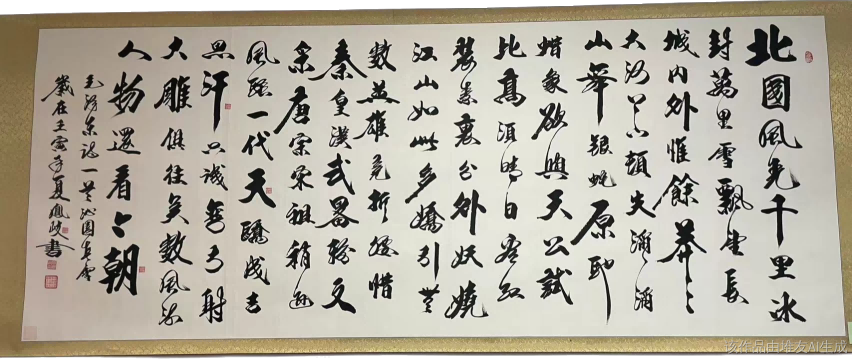 北國風光千里冰
封萬里雪飄望長
城内外惟餘莽〻
大河上下頓失滔滔
山舞銀蛇原馳
蜡象欲與天公試
比高須晴日看紅
裝素裹分外妖嬈
江山如此多嬌引無
數英雄競折腰惜
秦皇漢武畧輸文
采唐宗宋祖稍遜
風騷一代天驕成吉
思汗只識彎弓射
大雕俱往矣數風流
人物還看今朝
毛澤東詞一首沁園春雪
歲在壬寅年夏書
该作品由堆友AI生成